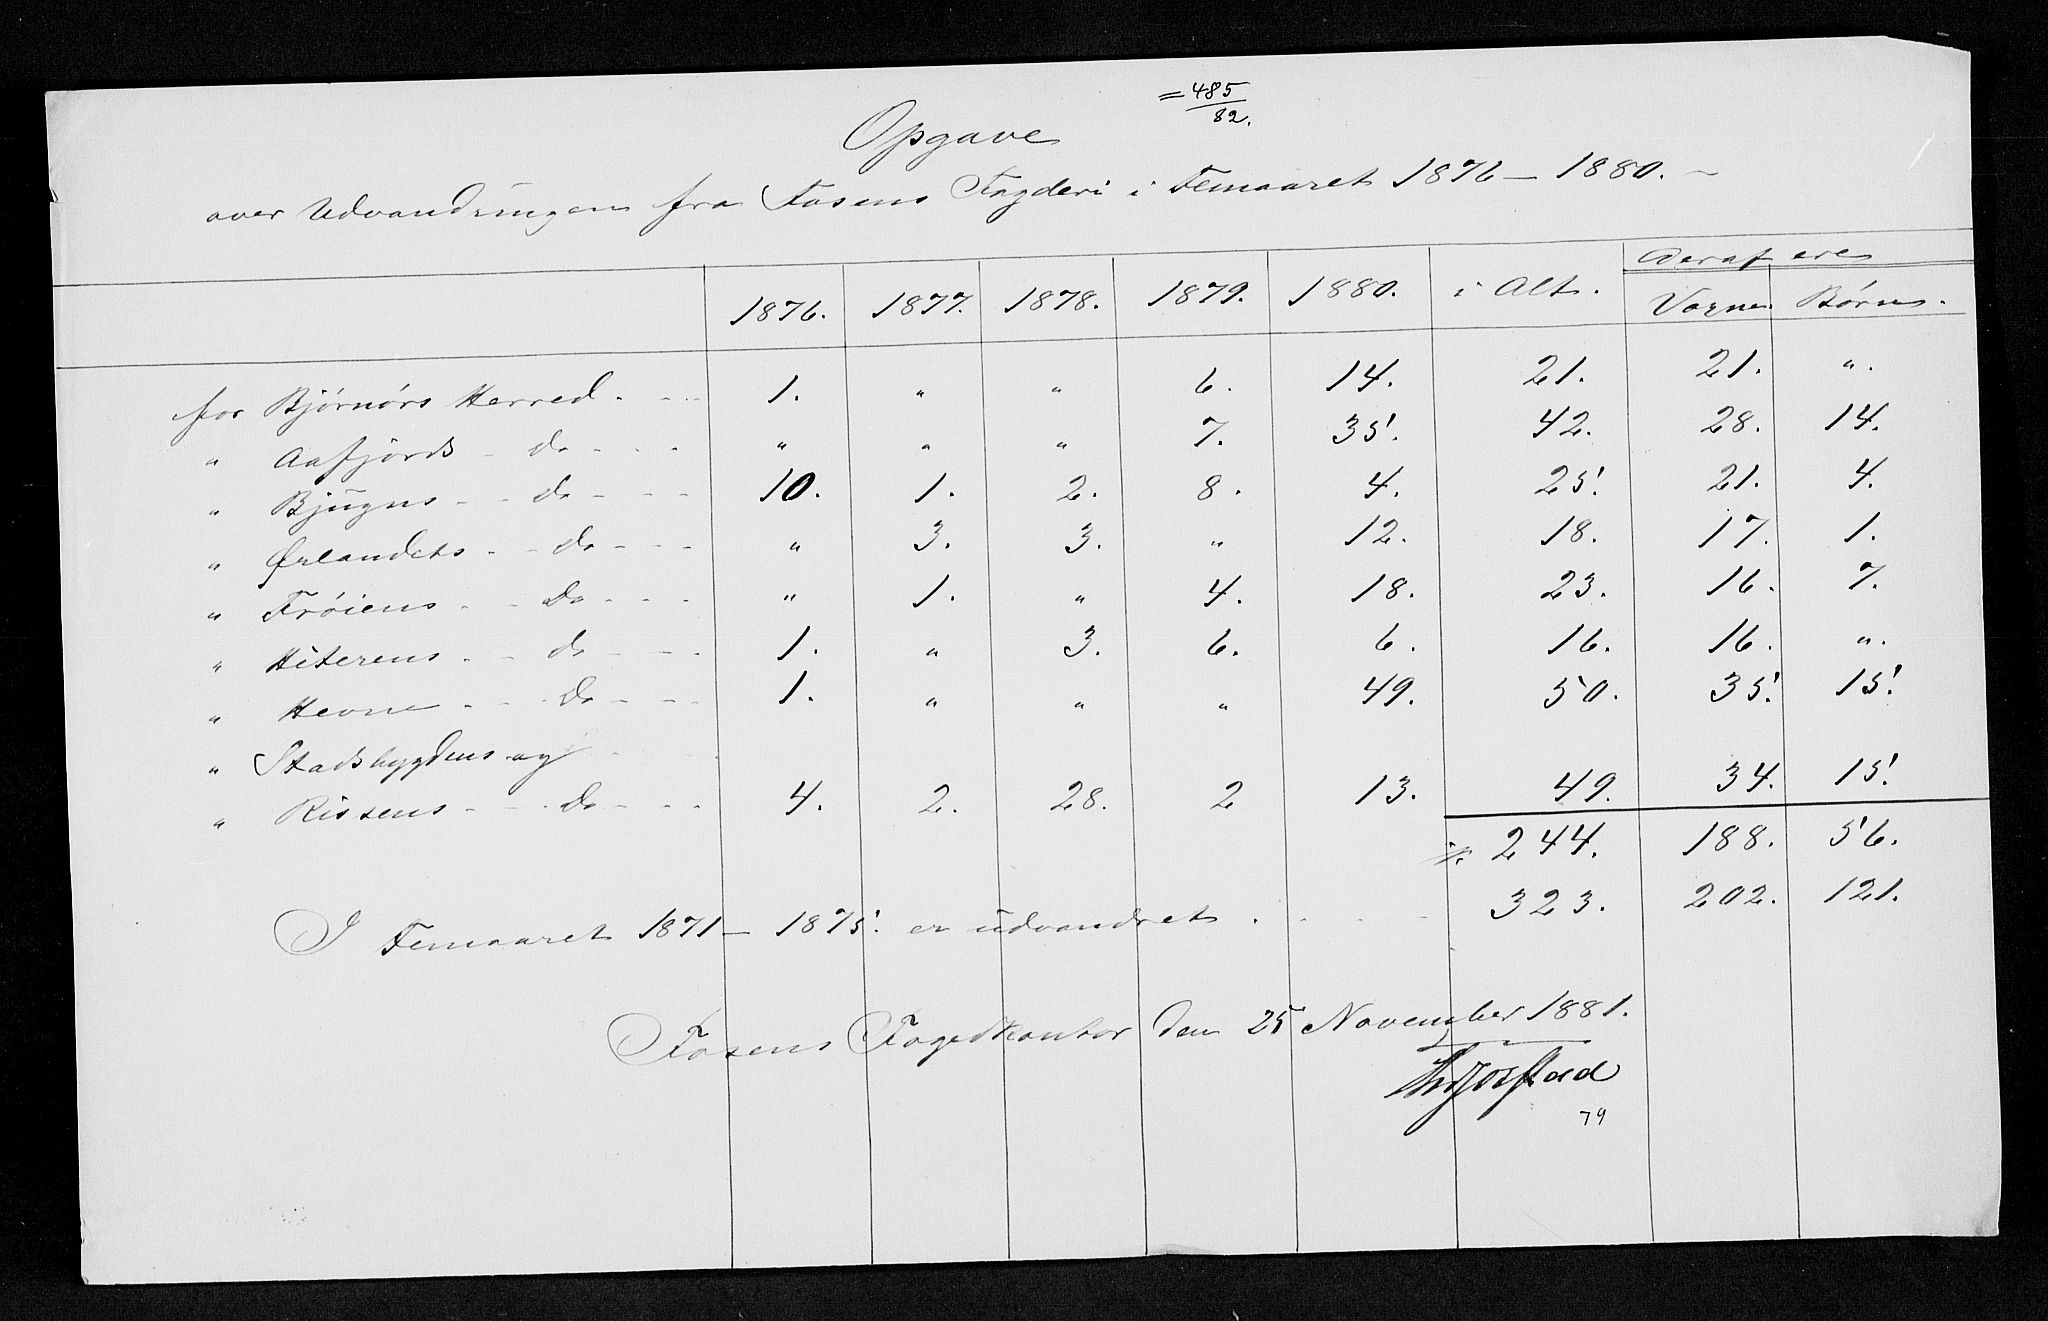 = 485/82.
Opgave
over Udvandringen fra Fosens Fogderi i Femaaret 1876 – 1880. –
Deraf ere
1876. 1877. 1878. 1879. 1880. i Alt. Voxne Børn.
for Bjørnørs Herred . - - 1. " " 6. 14. 21. 21. ".
" Aafjords - do - - - " " " 7. 35. 42. 28. 14.
" Bjugns - - do - - - 10. 1. 2. 8. 4. 25. 21. 4.
" Ørlandets - - do - - - " 3. 3. " 12. 18. 17. 1.
" Frøiens - - do - - - " 1. " 4. 18. 23. 16. 7.
" Hiterens - - do - - - 1. " 3. 6. 6. 16. 16. ".
" Hevne - - do - - - 1. " " " 49. 50. 35. 15.
" Stadsbygdens og - - -
" Rissens - - do - - - 4. 2. 28. 2 13. 49. 34. 15.
244. 188. 56.
I Femaaret 1871 – 1875. er udvandret . - - - 323. 202. 121.
Fosens Fogedkontor den 25 November 1881.
79